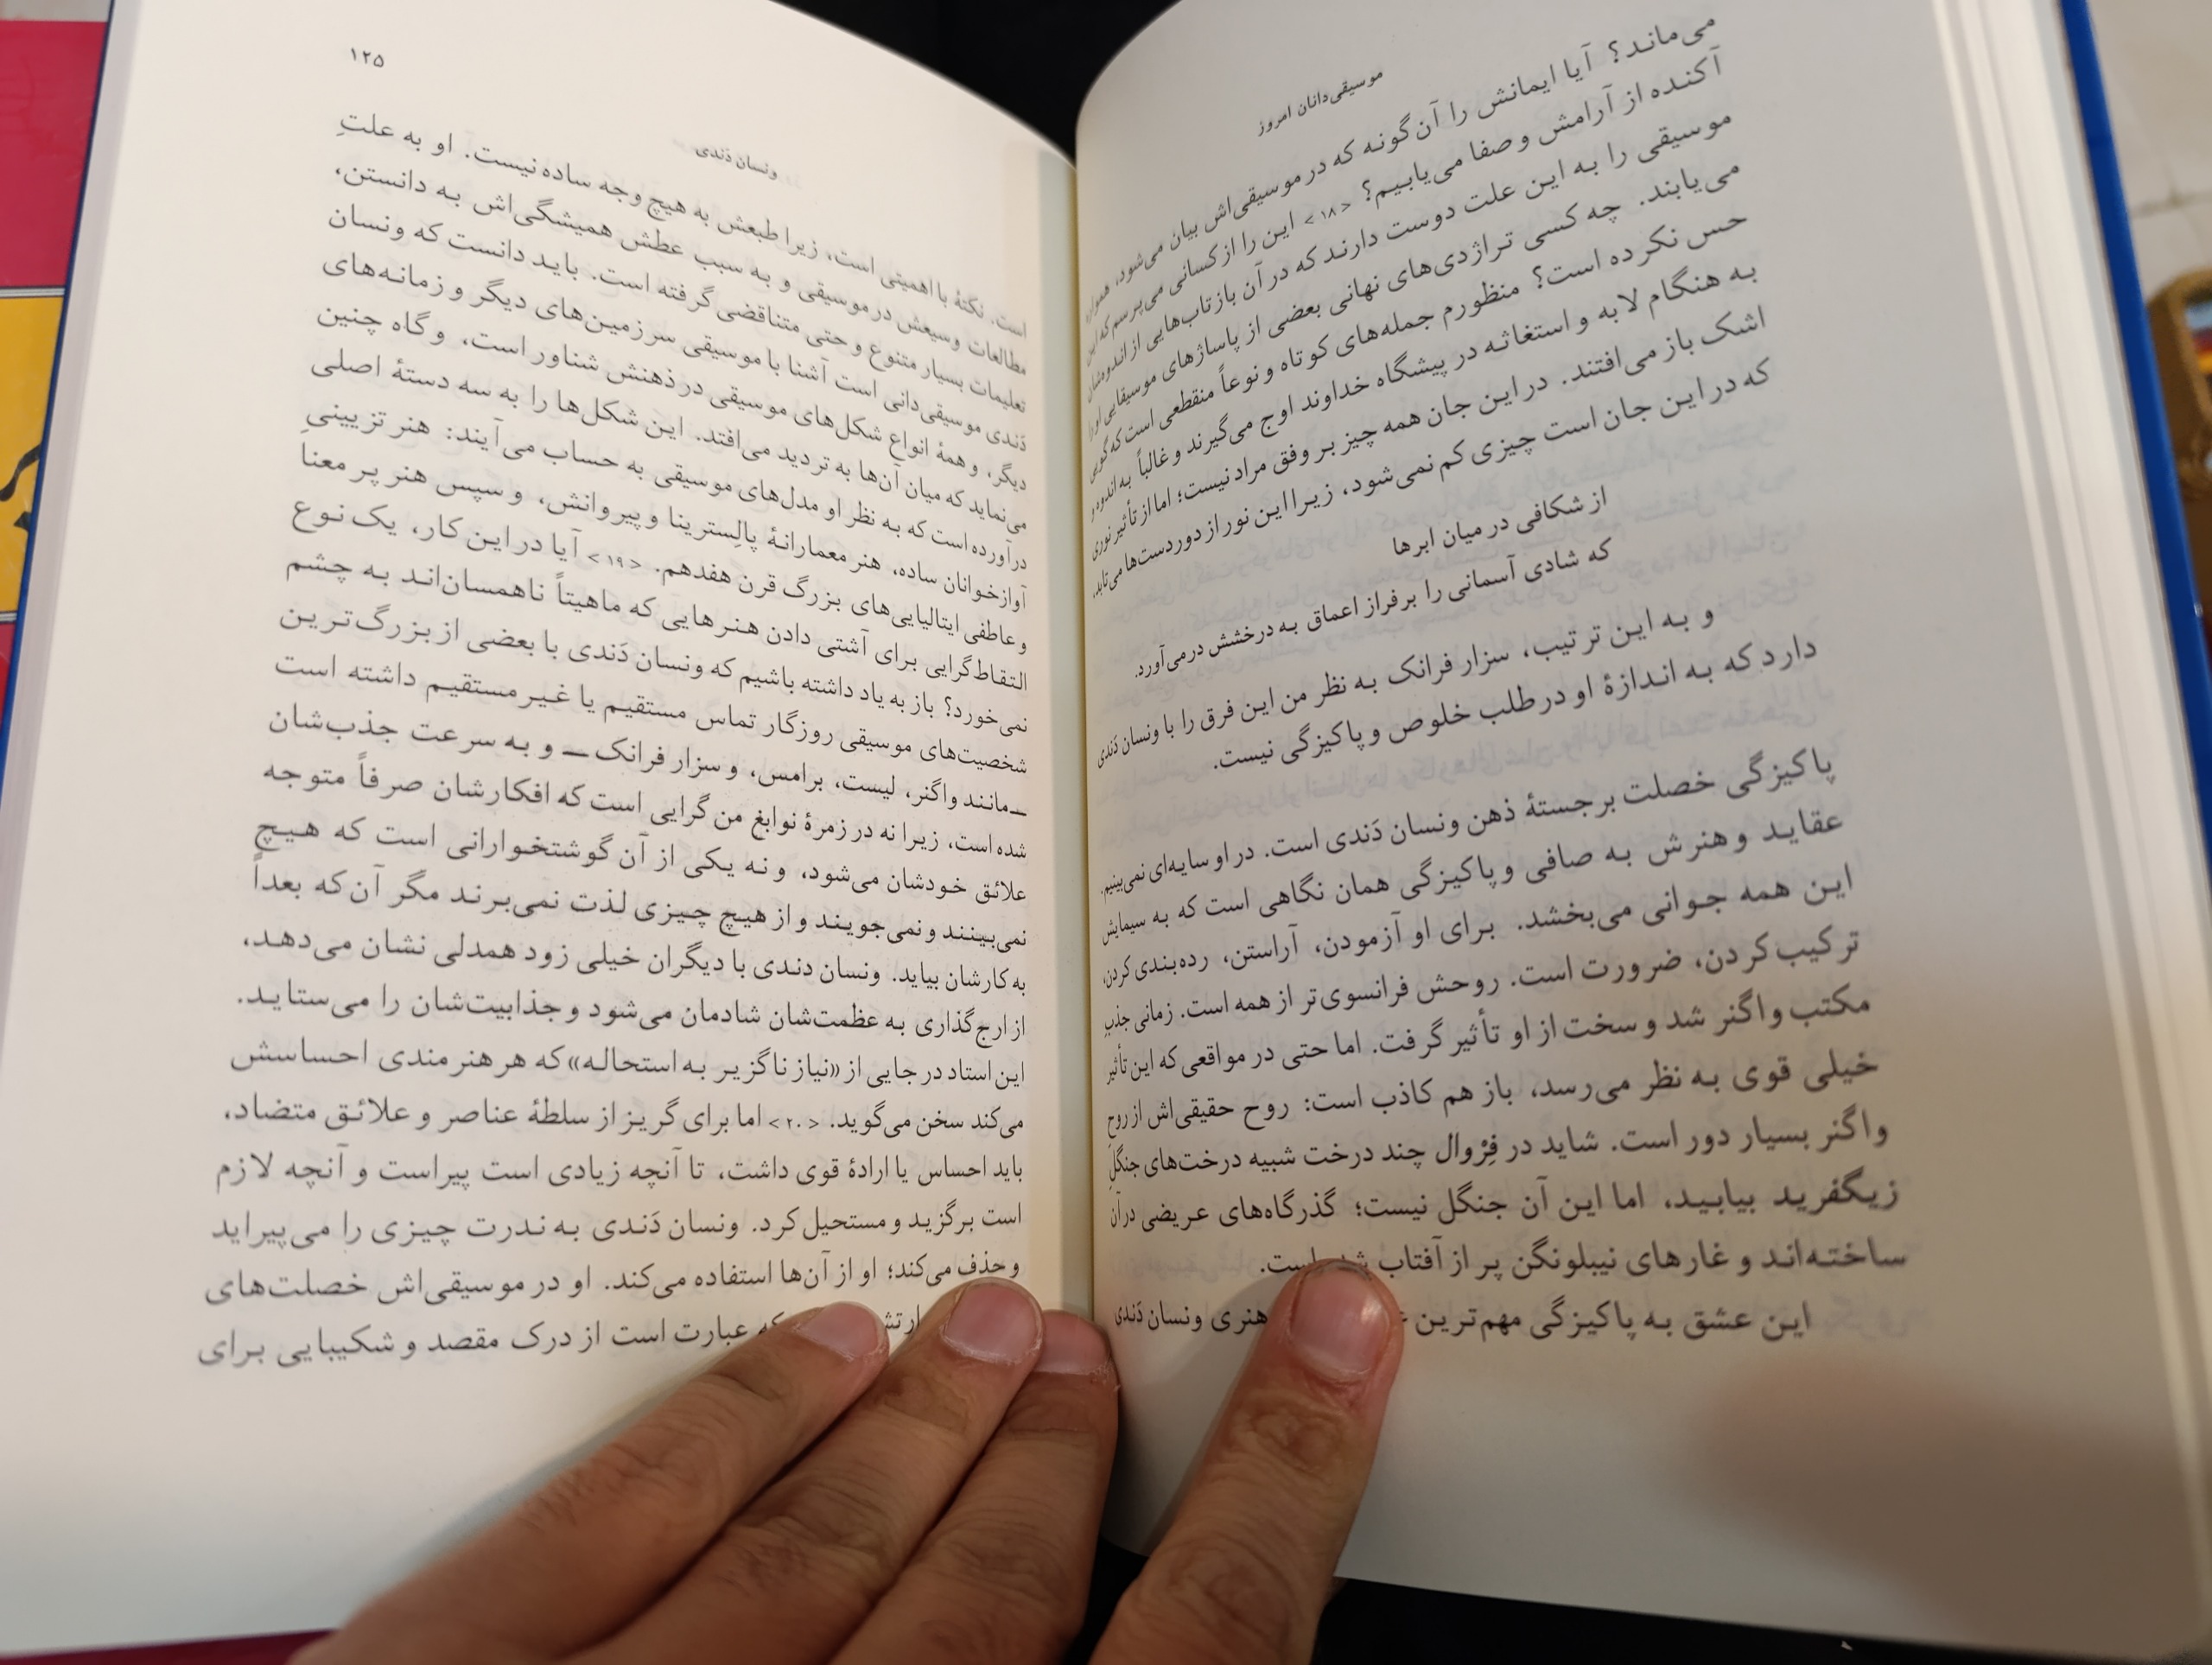 موسیقی‌دانان امروز
می‌ماند؟ آیا ایمانش را آن‌گونه که در موسیقی‌اش بیان می‌شود، همواره
آکنده از آرامش و صفا می‌یابیم؟ <۱۸> این را از کسانی می‌پرسم که این
موسیقی را به این علت دوست دارند که در آن بازتاب‌هایی از اندوهشان
می‌یابند. چه کسی تراژدی‌های نهانی بعضی از پاساژهای موسیقایی او را
حس نکرده است؟ منظورم جمله‌های کوتاه و نوعاً منقطعی است که گویی
به هنگام لابه و استغاثه در پیشگاه خداوند اوج می‌گیرند و غالباً به اندوه و
اشک باز می‌افتند. در این جان همه چیز بر وفق مراد نیست؛ اما از تأثیر نوری
که در این جان است چیزی کم نمی‌شود، زیرا این نور از دوردست‌ها می‌تابد،
از شکافی در میان ابرها
که شادی آسمانی را بر فراز اعماق به درخشش درمی‌آورد.
و به این ترتیب، سزار فرانک به نظر من این فرق را با ونسان دَندی
دارد که به اندازهٔ او در طلب خلوص و پاکیزگی نیست.
پاکیزگی خصلت برجستهٔ ذهن ونسان دَندی است. در او سایه‌ای نمی‌بینیم.
عقاید و هنرش به صافی و پاکیزگی همان نگاهی است که به سیمایش
این همه جوانی می‌بخشد. برای او آزمودن، آراستن، رده‌بندی کردن،
ترکیب کردن، ضرورت است. روحش فرانسوی‌تر از همه است. زمانی جذبِ
مکتب واگنر شد و سخت از او تأثیر گرفت. اما حتی در مواقعی که این تأثیر
خیلی قوی به نظر می‌رسد، باز هم کاذب است: روح حقیقی‌اش از روحِ
واگنر بسیار دور است. شاید در فِرْوال چند درخت شبیه درخت‌های جنگلِ
زیگفرید بیابید، اما این آن جنگل نیست؛ گذرگاه‌های عریضی در آن
ساخته‌اند و غارهای نیبلونگن پر از آفتاب شده است.
این عشق به پاکیزگی مهم‌ترین هنری ونسان دَندی
۱۲۵
ونسان دَندی
است. نکتهٔ با اهمیتی است، زیرا طبعش به هیچ وجه ساده نیست. او به علتِ
مطالعات وسیعش در موسیقی و به سبب عطش همیشگی‌اش به دانستن،
تعلیمات بسیار متنوع و حتی متناقضی گرفته است. باید دانست که ونسان
دَندی موسیقی‌دانی است آشنا با موسیقی سرزمین‌های دیگر و زمانه‌های
دیگر، و همهٔ انواع شکل‌های موسیقی در ذهنش شناور است، و گاه چنین
می‌نماید که میان آن‌ها به تردید می‌افتد. این شکل‌ها را به سه دستهٔ اصلی
درآورده است که به نظر او مدل‌های موسیقی به حساب می‌آیند: هنر تزیینیِ
آوازخوانان ساده، هنر معمارانهٔ پالِسترینا و پیروانش، و سپس هنر پر معنا
و عاطفی ایتالیایی‌های بزرگ قرن هفدهم. <۱۹> آیا در این کار، یک نوع
التقاط‌گرایی برای آشتی دادن هنرهایی که ماهیتاً ناهمسان‌اند به چشم
نمی‌خورد؟ باز به یاد داشته باشیم که ونسان دَندی با بعضی از بزرگ‌ترین
شخصیت‌های موسیقی روزگار تماس مستقیم یا غیرمستقیم داشته است
ــ مانند واگنر، لیست، برامس، و سزار فرانک ــ و به سرعت جذب‌شان
شده است، زیرا نه در زمرهٔ نوابغ من‌گرایی است که افکارشان صرفاً متوجه
علائق خودشان می‌شود، و نه یکی از آن گوشتخوارانی است که هیچ
نمی‌بینند و نمی‌جویند و از هیچ چیزی لذت نمی‌برند مگر آن‌که بعداً
به کارشان بیاید. ونسان دندی با دیگران خیلی زود همدلی نشان می‌دهد،
از ارج‌گذاری به عظمت‌شان شادمان می‌شود و جذابیت‌شان را می‌ستاید.
این استاد در جایی از «نیاز ناگزیر به استحاله» که هر هنرمندی احساسش
می‌کند سخن می‌گوید. <۲۰> اما برای گریز از سلطهٔ عناصر و علائق متضاد،
باید احساس یا ارادهٔ قوی داشت، تا آنچه زیادی است پیراست و آنچه لازم
است برگزید و مستحیل کرد. ونسان دَندی به ندرت چیزی را می‌پیراید
و حذف می‌کند؛ او از آن‌ها استفاده می‌کند. او در موسیقی‌اش خصلت‌های
که عبارت است از درک مقصد و شکیبایی برای